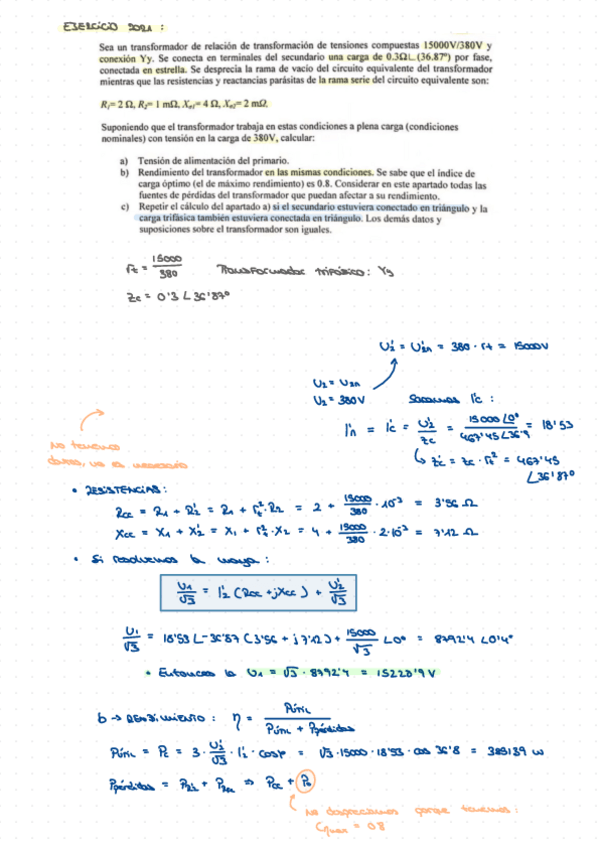 EJERCICIO 2021 :
Sea un transformador de relación de transformación de tensiones compuestas 15000V/380V y
conexión Yy. Se conecta en terminales del secundario una carga de 0.3Ω∟(36.87º) por fase,
conectada en estrella. Se desprecia la rama de vacío del circuito equivalente del transformador
mientras que las resistencias y reactancias parásitas de la rama serie del circuito equivalente son:
R₁= 2 Ω, R₂= 1 mΩ, Xσ1= 4 Ω, Xσ2= 2 mΩ.
Suponiendo que el transformador trabaja en estas condiciones a plena carga (condiciones
nominales) con tensión en la carga de 380V, calcular:
a) Tensión de alimentación del primario.
b) Rendimiento del transformador en las mismas condiciones. Se sabe que el índice de
carga óptimo (el de máximo rendimiento) es 0.8. Considerar en este apartado todas las
fuentes de pérdidas del transformador que puedan afectar a su rendimiento.
c) Repetir el cálculo del apartado a) si el secundario estuviera conectado en triángulo y la
carga trifásica también estuviera conectada en triángulo. Los demás datos y
suposiciones sobre el transformador son iguales.
rt = 15000/380 Transformador trifásico: Yy
Zc = 0'3 ∠36'87º
U2' = U2n' = 380 · rt = 15000V
U2 = U2n
U2 = 380V Sacamos I'c :
I'n = I'c = U2'/Zc' = 15000∠0º/467'45∠36'9 = 18'53
↳ Zc' = Zc · rt² = 467'45 ∠36'87º
No tenemos
datos, no es necesario
• RESISTENCIAS:
Rcc = R1 + R2' = R1 + rt² · R2 = 2 + 15000/380 · 10⁻³ = 3'56 Ω
Xcc = X1 + X2' = X1 + rt² · X2 = 4 + 15000/380 · 2·10⁻³ = 7'12 Ω
• Si resolvemos la malla :
U1/√3 = I2' (Rcc + jXcc) + U2'/√3
U1/√3 = 18'53 ∠-36'87 (3'56 + j7'12) + 15000/√3 ∠0º = 8792'4 ∠0'4º
• Entonces la U1 = √3 · 8792'4 = 15228'9 V
b → RENDIMIENTO : η = Pútil / Pútil + Ppérdidas
Pútil = Pc = 3 · U2'/√3 · I2' · cosφ = √3 · 15000 · 18'53 · cos 36'8 = 385139 W
Ppérdidas = PRi + PFe ⇒ Pcc + P0
No despreciamos porque tenemos:
Cmax = 0.8